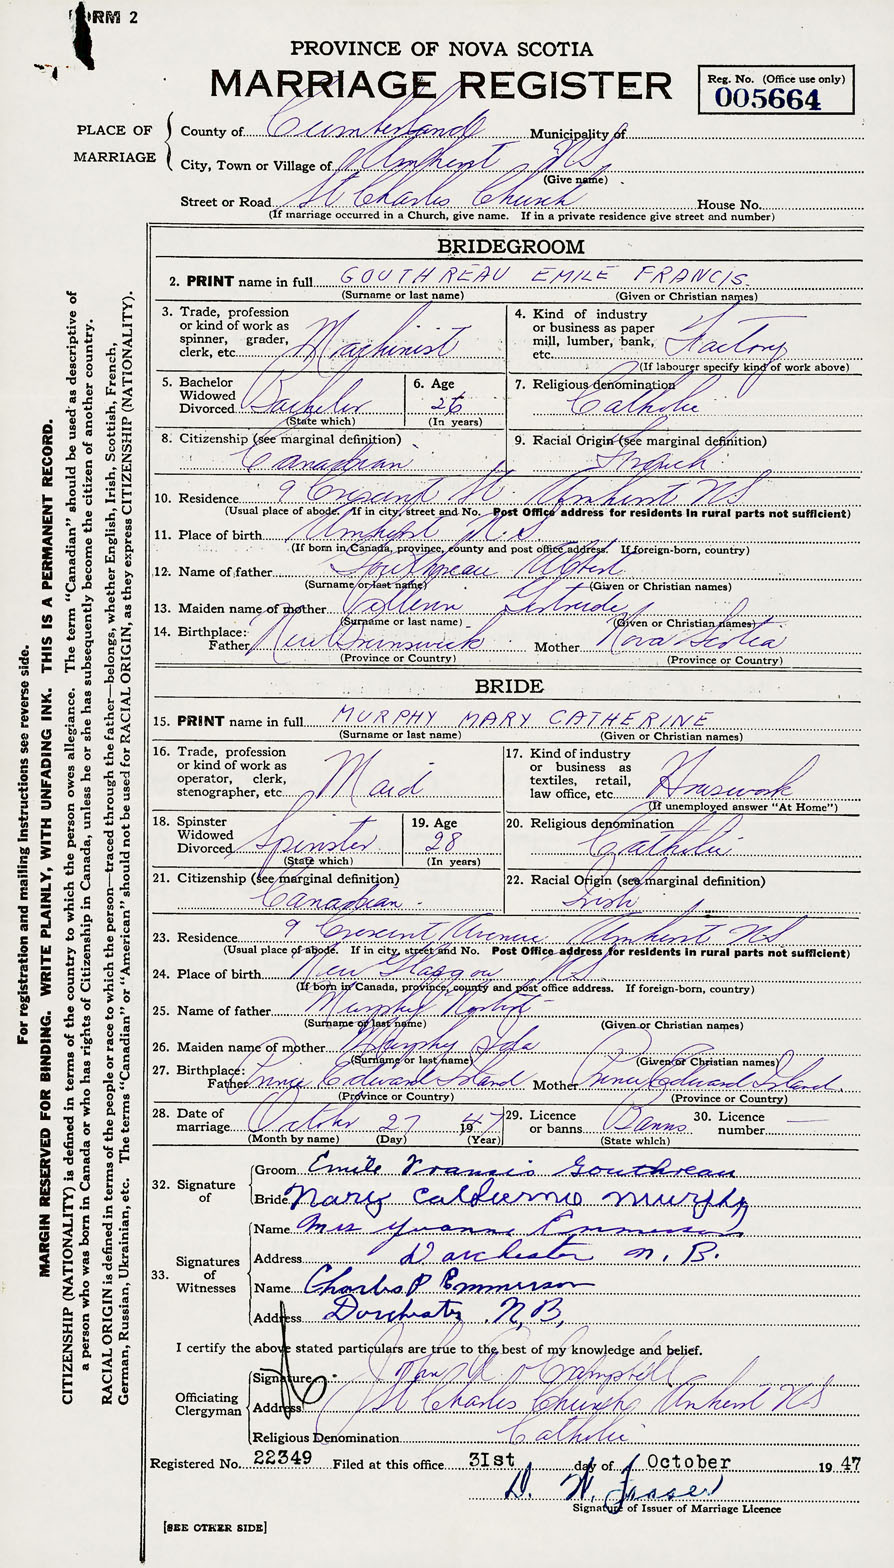 FORM 2
PROVINCE OF NOVA SCOTIA
MARRIAGE REGISTER
Reg. No. (Office use only)
005664
PLACE OF MARRIAGE
County of Cumberland Municipality of
City, Town or Village of Amherst NS
(Give name)
Street or Road St Charles Church House No.
(If marriage occurred in a Church, give name. If in a private residence give street and number)
BRIDEGROOM
2. PRINT name in full GOUTHREAU EMILE FRANCIS.
(Surname or last name) (Given or Christian names)
3. Trade, profession or kind of work as spinner, grader, clerk, etc. Machinist
4. Kind of industry or business as paper mill, lumber, bank, etc. Factory
(If labourer specify kind of work above)
5. Bachelor Widowed Divorced Bachelor
(State which)
6. Age 26
(In years)
7. Religious denomination Catholic
8. Citizenship (see marginal definition) Canadian
9. Racial Origin (see marginal definition) French
10. Residence 9 Crescent St. Amherst NS
(Usual place of abode. If in city, street and No. Post Office address for residents in rural parts not sufficient)
11. Place of birth Amherst N.S.
(If born in Canada, province, county and post office address. If foreign-born, country)
12. Name of father Gouthreau Albert
(Surname or last name) (Given or Christian names)
13. Maiden name of mother Gertrude
(Surname or last name) (Given or Christian names)
14. Birthplace: Father New Brunswick Mother Nova Scotia
(Province or Country) (Province or Country)
BRIDE
15. PRINT name in full MURPHY MARY CATHERINE
(Surname or last name) (Given or Christian names)
16. Trade, profession or kind of work as operator, clerk, stenographer, etc. Maid
17. Kind of industry or business as textiles, retail, law office, etc. Housework
(If unemployed answer "At Home")
18. Spinster Widowed Divorced Spinster
(State which)
19. Age 28
(In years)
20. Religious denomination Catholic
21. Citizenship (see marginal definition) Canadian
22. Racial Origin (see marginal definition) Irish
23. Residence 9 Crescent Avenue Amherst NS
(Usual place of abode. If in city, street and No. Post Office address for residents in rural parts not sufficient)
24. Place of birth New Glasgow N.S.
(If born in Canada, province, county and post office address. If foreign-born, country)
25. Name of father Murphy
(Surname or last name) (Given or Christian names)
26. Maiden name of mother Murphy Ida
(Surname or last name) (Given or Christian names)
27. Birthplace: Father Prince Edward Island Mother Prince Edward Island
(Province or Country) (Province or Country)
28. Date of marriage October 27 1947
(Month by name) (Day) (Year)
29. Licence or banns Banns
(State which)
30. Licence number —
32. Signature of
Groom Emile Francis Gouthreau
Bride Mary Catherine Murphy
33. Signatures of Witnesses
Name Mrs Yvonne Emmerson
Address Dorchester N.B.
Name Charles P Emmerson
Address Dorchester N.B,
I certify the above stated particulars are true to the best of my knowledge and belief.
Officiating Clergyman
Signature John A Campbell
Address St Charles Church Amherst NS
Religious Denomination Catholic
Registered No. 22349 Filed at this office 31st day of October 1947
D. W.
Signature of Issuer of Marriage Licence
[SEE OTHER SIDE]
For registration and mailing instructions see reverse side.
MARGIN RESERVED FOR BINDING. WRITE PLAINLY, WITH UNFADING INK. THIS IS A PERMANENT RECORD.
CITIZENSHIP (NATIONALITY) is defined in terms of the country to which the person owes allegiance. The term "Canadian" should be used as descriptive of
a person who was born in Canada or who has rights of Citizenship in Canada, unless he or she has subsequently become the citizen of another country.
RACIAL ORIGIN is defined in terms of the people or race to which the person—traced through the father—belongs, whether English, Irish, Scottish, French,
German, Russian, Ukrainian, etc. The terms "Canadian" or "American" should not be used for RACIAL ORIGIN, as they express CITIZENSHIP (NATIONALITY).